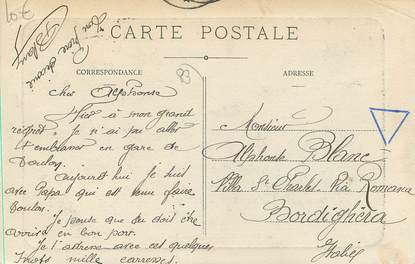 Ton frère Antoine
Blanc
CARTE POSTALE
CORRESPONDANCE
ADRESSE
83
Cher Alphonse
Hier à mon grand
regret, je n'ai pas aller
t'embrasser en gare de
Toulon.
Aujourd'hui je suis
avec Papa qui est venu faire
Toulon.
Je pense que tu dois être
arrivé en bon port.
Je t'adresse avec ces quelques
mots mille caresses.
Monsieur
Alphonse Blanc
Villa St Charles Via Romana
Bordighera
Italie